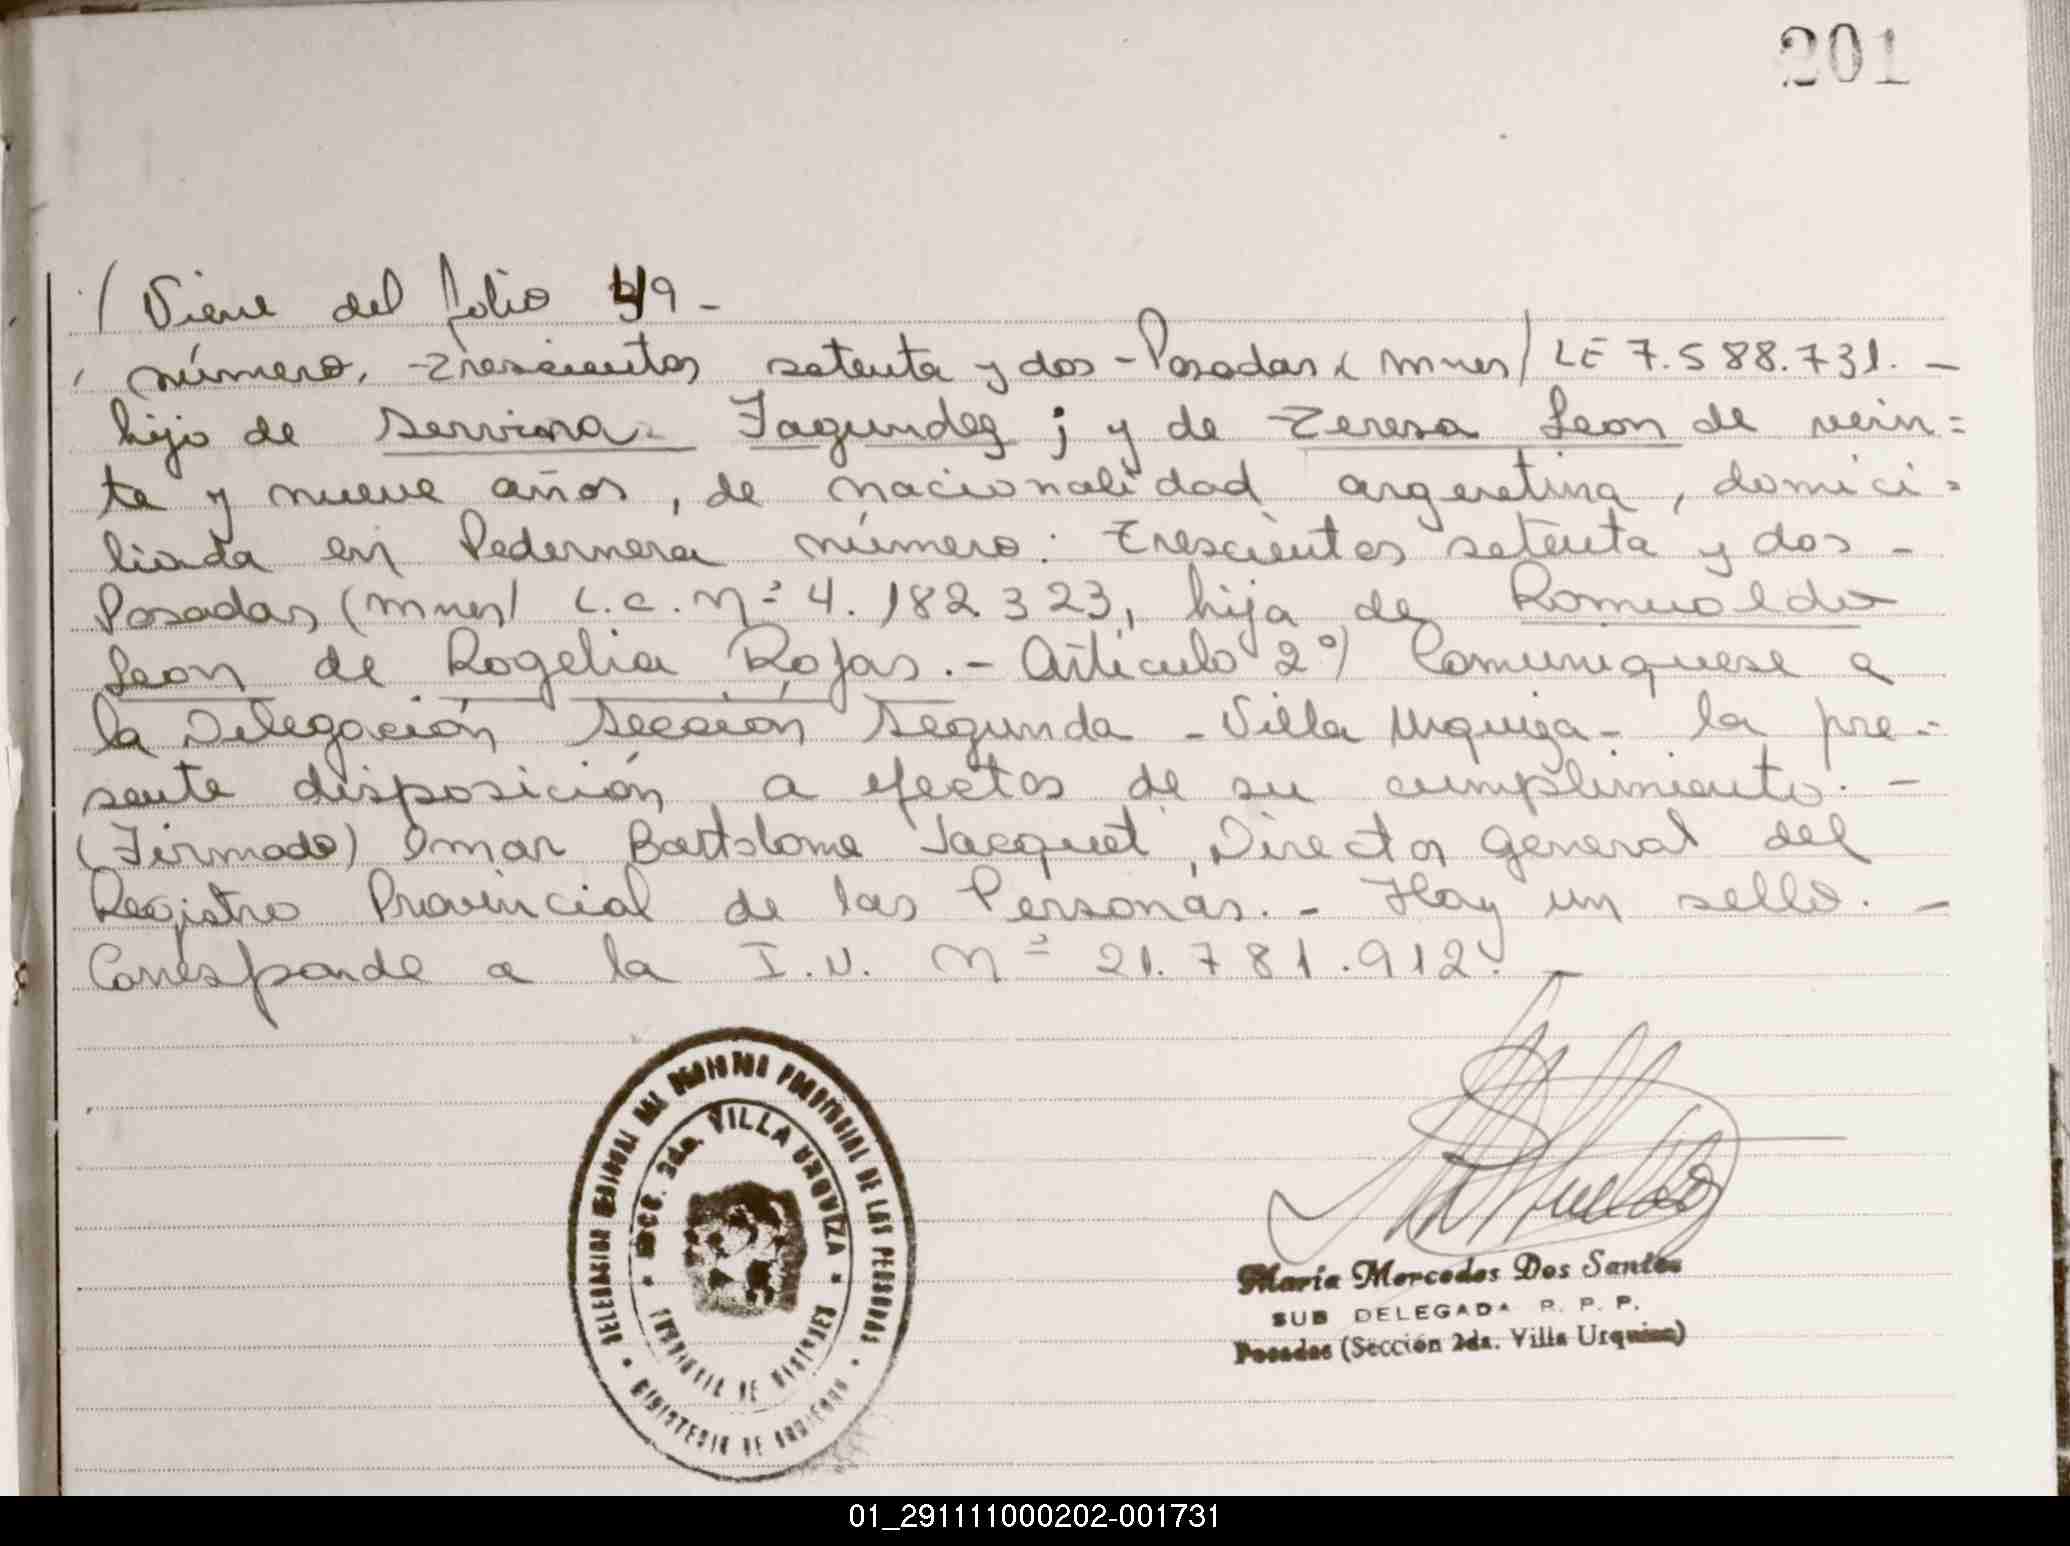 201
/ Viene del folio 49 -
número, Trescientos setenta y dos - Posadas (Mnes) LE 7.588.731. -
hijo de Servina - Fagundez ; y de Teresa Leon de vein=
te y nueve años, de nacionalidad argentina, domici=
liada en Pedernera número: Trescientos setenta y dos -
Posadas (Mnes) L.C. Nº 4.182.323, hija de Romualdo
Leon de Rogelia Rojas. - Artículo 2º) Comuniquese a
la Delegación Sección Segunda - Villa Urquiza - la pre=
sente disposición, a efectos de su cumplimiento. -
(Firmado) Omar Bartolome Jacquet, Director General del
Registro Provincial de las Personas. - Hay un sello. -
Corresponde a la I.N. Nº 21.781.912. -
DELEGACION REGIONAL DEL REGISTRO PROVINCIAL DE LAS PERSONAS
SECC. 2da. VILLA URQUIZA
PROVINCIA DE MISIONES
MINISTERIO DE GOBIERNO
María Mercedes Dos Santos
SUB DELEGADA R. P. P.
Posadas (Sección 2da. Villa Urquiza)
01_291111000202-001731